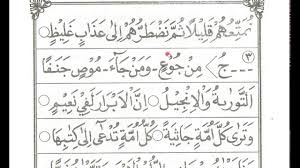 نُمَتِّعُهُمْ قَلِيْلًا ثُمَّ نَضْطَرُّهُمْ اِلٰى عَذَابٍ غَلِيْظٍ ○
٣ --- ج / مِنْ جُوْعٍ - وَمَنْ جَآءَ - مُوْصٍ جَنَفًا
التَّوْرٰىةَ وَالْاِنْجِيْلَ ○ اِنَّ الْاَبْرَارَ لَفِيْ نَعِيْمٍ ○
وَتَرٰى كُلَّ اُمَّةٍ جَاثِيَةً كُلُّ اُمَّةٍ تُدْعٰٓى اِلٰى كِتٰبِهَا